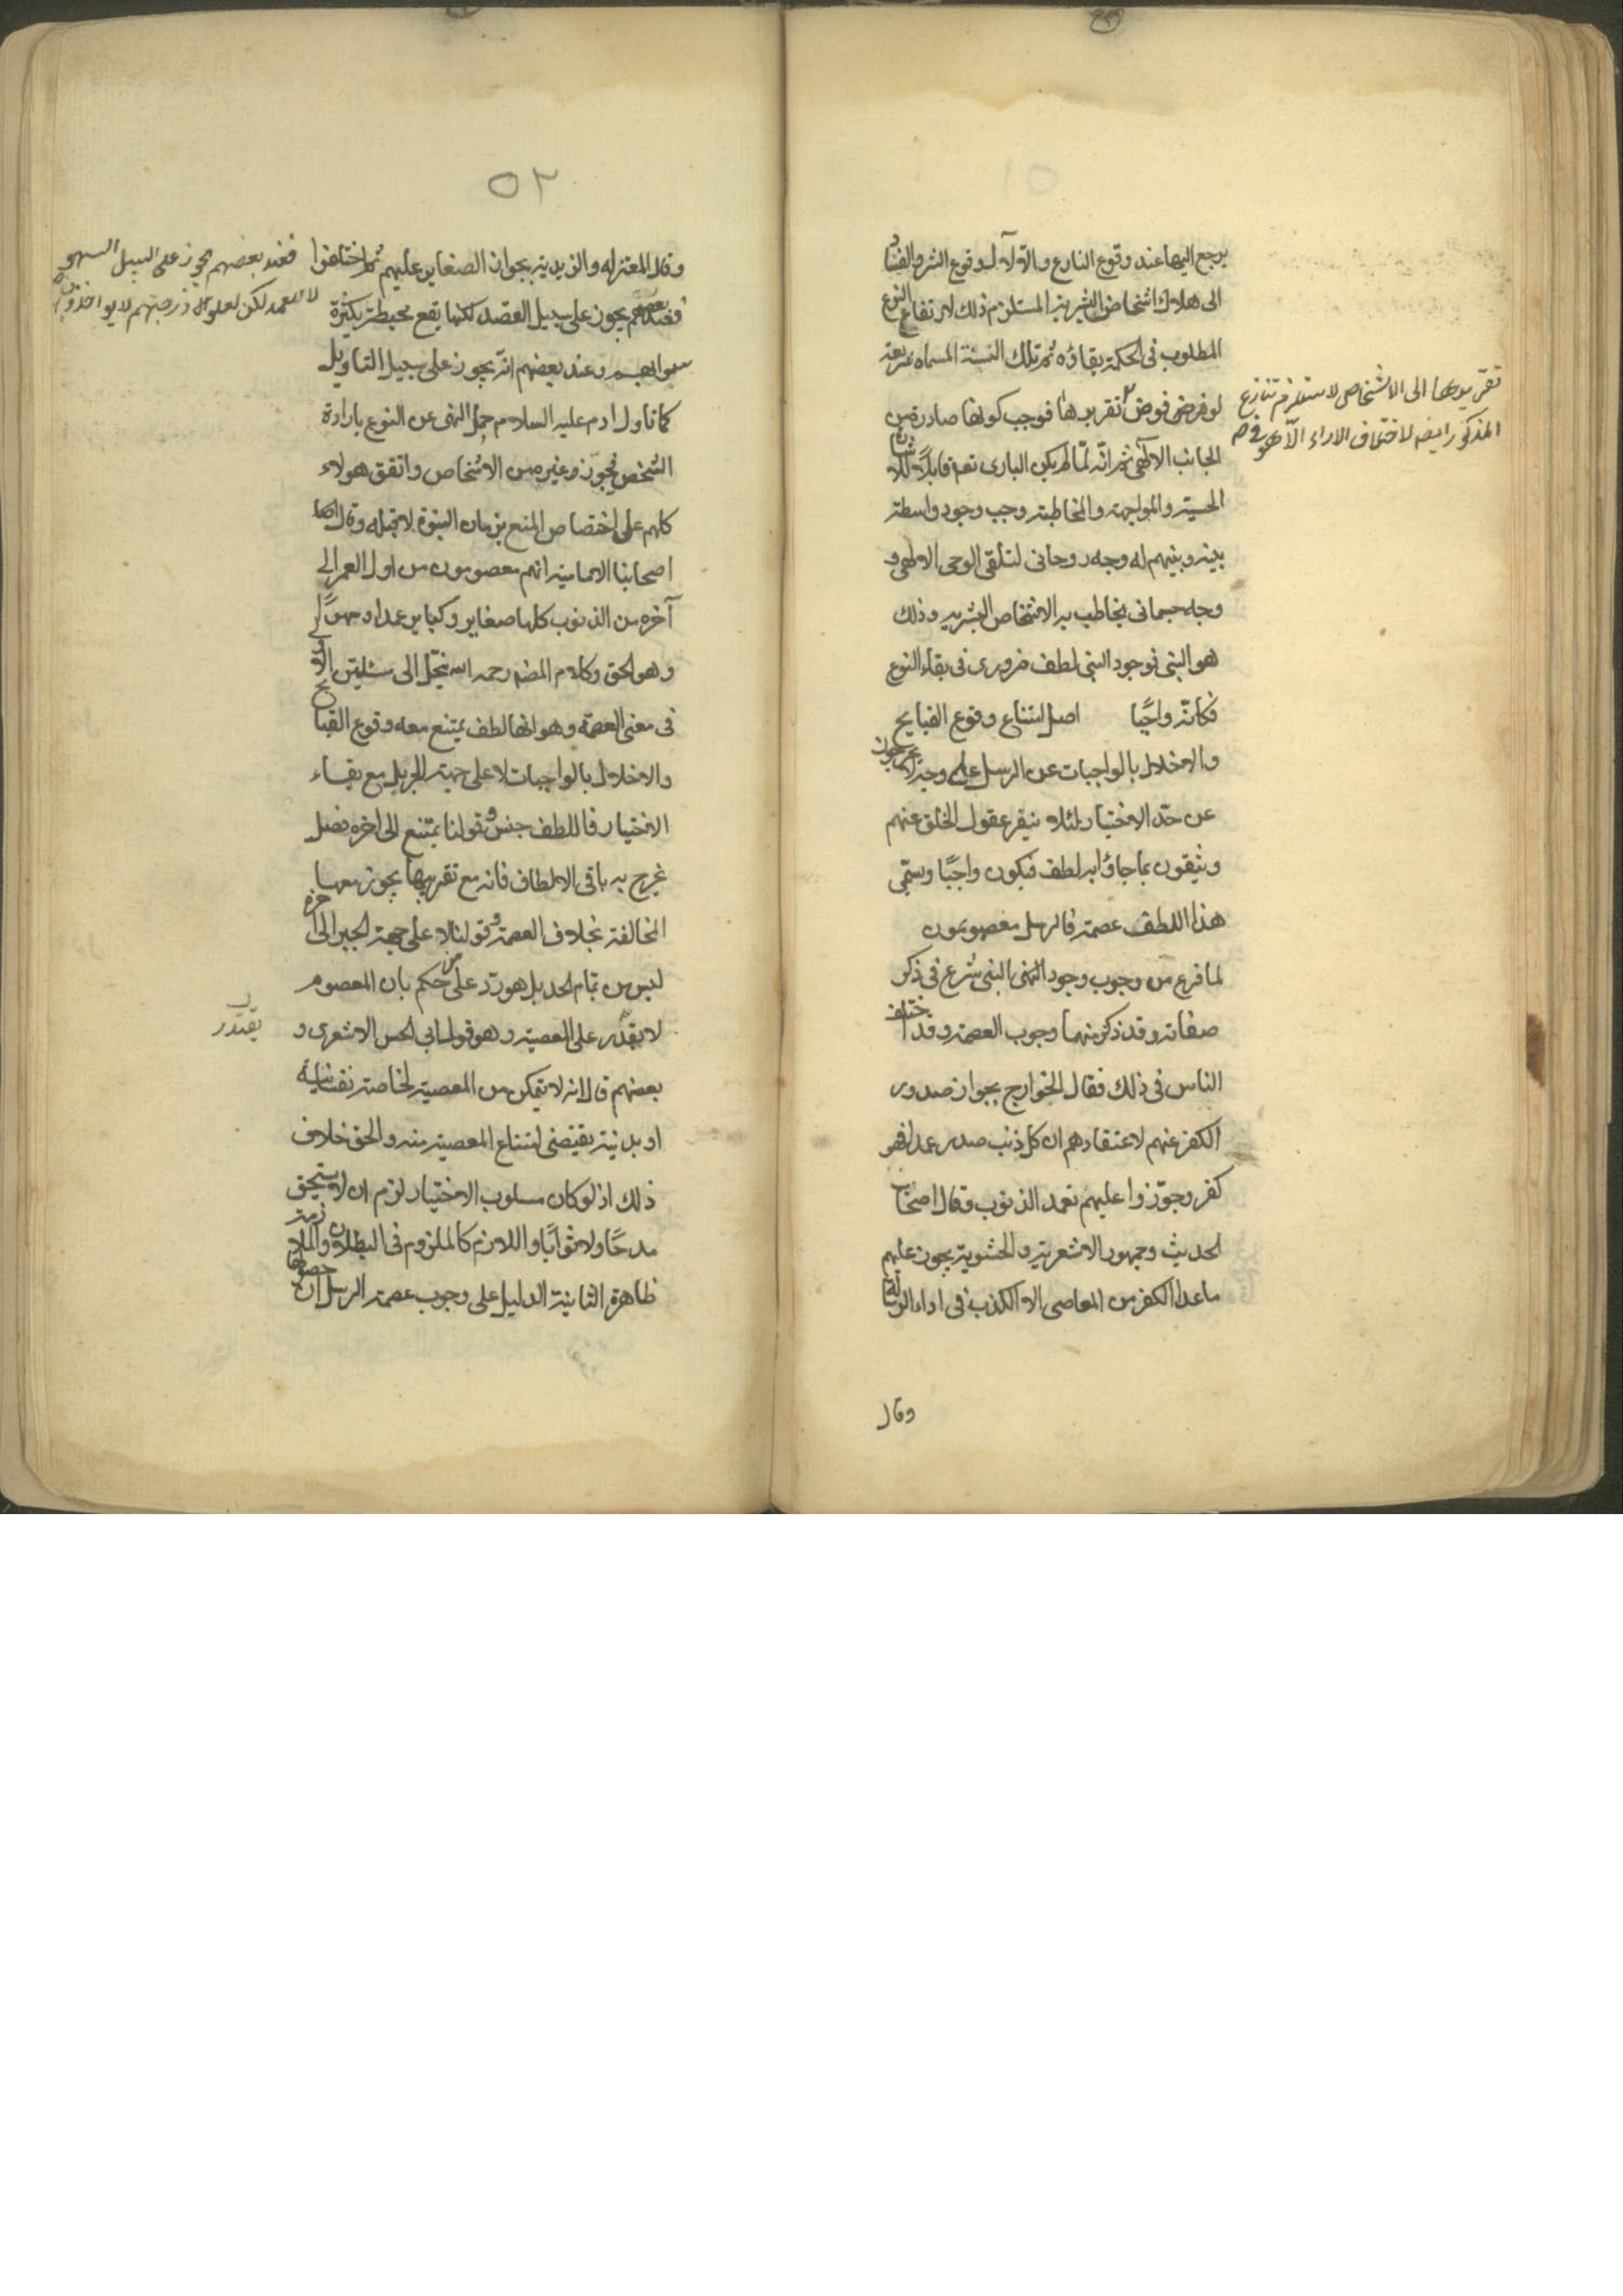 يرجع اليها عند وقوع النازع والا لآل وقوع الشر والفساد
الى هلاك اشخاص البشرية المستلزم ذلك لارتفاع النوع
المطلوب فى الحكمة بقاؤه ثم تلك السنة المسماه شريعة
لو فرض فوض تقريرها فوجب كونها صادرة من
تقريرها الى الاشخاص لاستلزم تنازع
المذكور ايضه لاختلاف الاراء الا هوى
الجانب الالهى ثم انه لما لم يكن البارى تعه قابلا للاشارة
الحسية والمواجهة والمخاطبة وجب وجود واسطة
بينه وبينهم له وجه روحانى لتلقى الوحى الالهى و
وجه جسمانى يخاطب به الاشخاص البشريه وذلك
هو النبى فوجود النبى لطف ضرورى فى بقاء النوع
فكانه واجبا اصل امتناع وقوع القبايح
والاخلال بالواجبات عن الرسل علي وجه لا يخرجون
عن حد الاختيار لئلا ينفر عقول الخلق عنهم
ويثقون بما جاؤا به لطف فيكون واجبا ويسمى
هذا اللطف عصمة فالرسل معصومون
لما فرغ من وجوب وجود النبى شرع فى ذكر
صفاته وقد ذكر منها وجوب العصمة وقد اختلف
الناس فى ذلك فقال الخوارج بجواز صدور
الكفر عنهم لاعتقادهم ان كل ذنب صدر عمدا فهو
كفر وجوزوا عليهم تعمد الذنوب وقال اصحاب
الحديث وجمهور الاشعرية والحشوية يجوز عليهم
ماعدا الكفر من المعاصى الا الكذب فى اداء الرسالة
وقال
٥٢
وقال المعتزله والزيدية بجواز الصغاير عليهم ثم اختلفوا
فعند بعضهم يجوز على السبيل السهو
لا للعمد لكن لعلو درجتهم لا يواخذون
فعند بعضهم يجوز على سبيل القصد لكنها يقع محبطة بكثرة
ثوابهم وعند بعضهم انه يجوز على سبيل التاويل
كما تاول ادم عليه السلام حمل النهى عن النوع بارادة
الشخص فجوز غيره من الاشخاص واتفق هولاء
كلهم على اختصاص المنع بزمان النبوة لا قبله وقال
اصحابنا الامامية انهم معصومون من اول العمر الى
آخره من الذنوب كلها صغاير وكباير عمدا وسهوا
وهو الحق وكلام المصه رحمه الله ينحل الى مسئلتين الاولى
فى معنى العصمة وهو انها لطف يمتنع معه وقوع القبايح
والاخلال بالواجبات لا على جهة الجبر بل مع بقاء
الاختيار فاللطف جنس وقولنا يمتنع الى اخره فصل
يخرج به باقى الالطاف فانه مع تقريبها يجوز معها
المخالفة بخلاف العصمة وقولنا لا على جهة الجبر الى اخره
ليس من تمام الحد بل هو رد على من حكم بان المعصوم
لا يقدر على المعصية وهو قول ابى الحسن الاشعرى و
يقتدر
بعضهم قال انه لا يتمكن من المعصية لخاصة نفسانية
او بدنية يقتضى امتناع المعصية منه والحق خلاف
ذلك اذ لو كان مسلوب الاختيار لزم ان لا يستحق
مدحا ولا ثوابا واللازم كالملزوم فى البطلان والملازمة
ظاهرة الثانية الدليل على وجوب عصمة الرسل ان حصولها